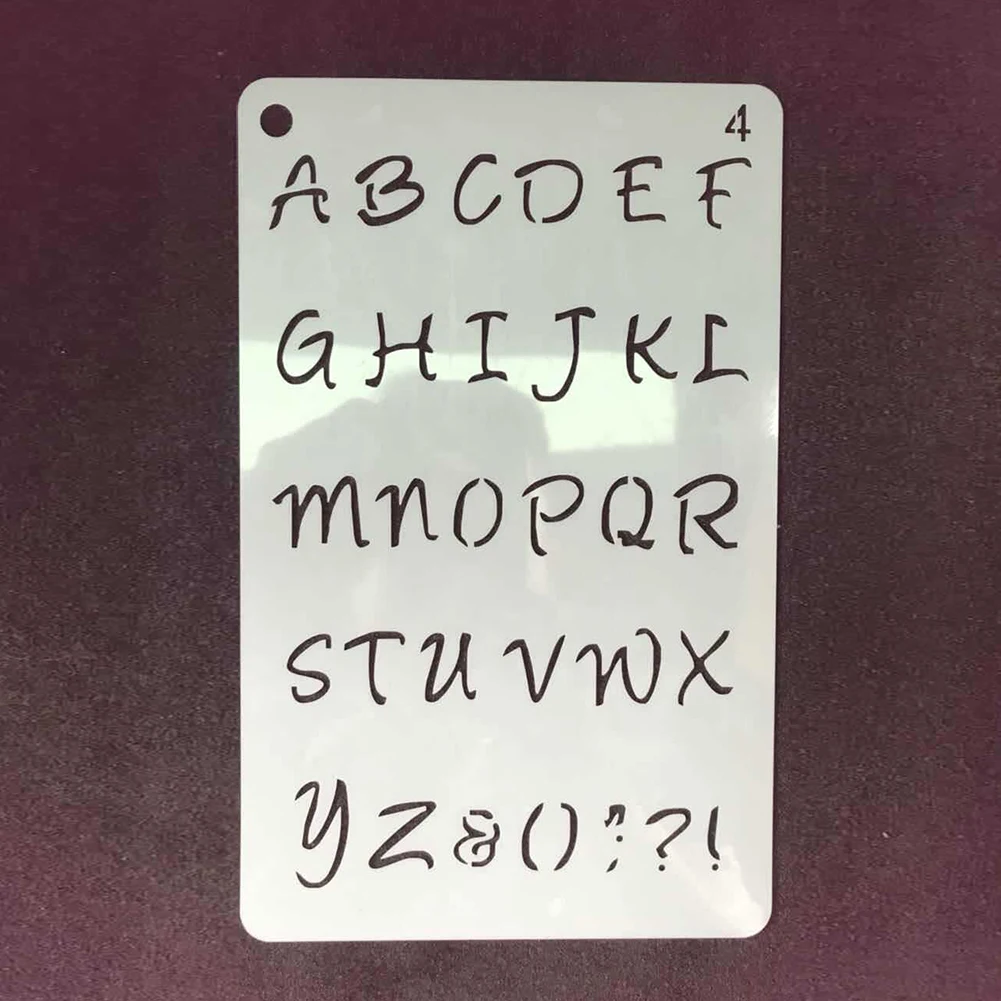 4
A B C D E F
G H I J K L
M N O P Q R
S T U V W X
Y Z & ( ) " ; ? !